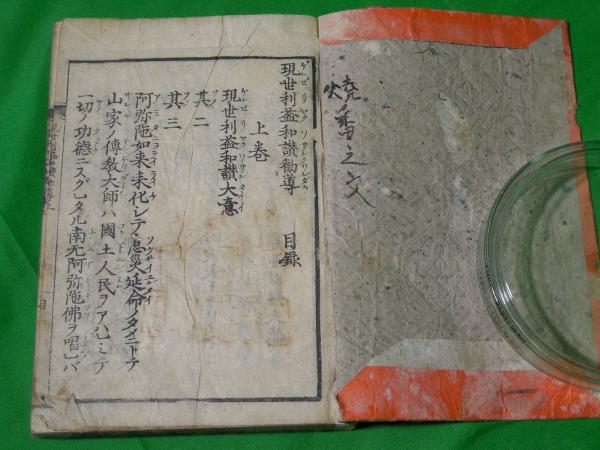 燒香之文
現世利益和讃勧導　目録
上巻
現世利益和讃大意
其二
其三
阿弥陀如来来化シテ息災延命ノタメニトテ
山家ノ傳教大師ハ國土人民ヲアハレミテ
一切ノ功徳ニスグレタル南无阿弥陀佛ヲ唱レバ